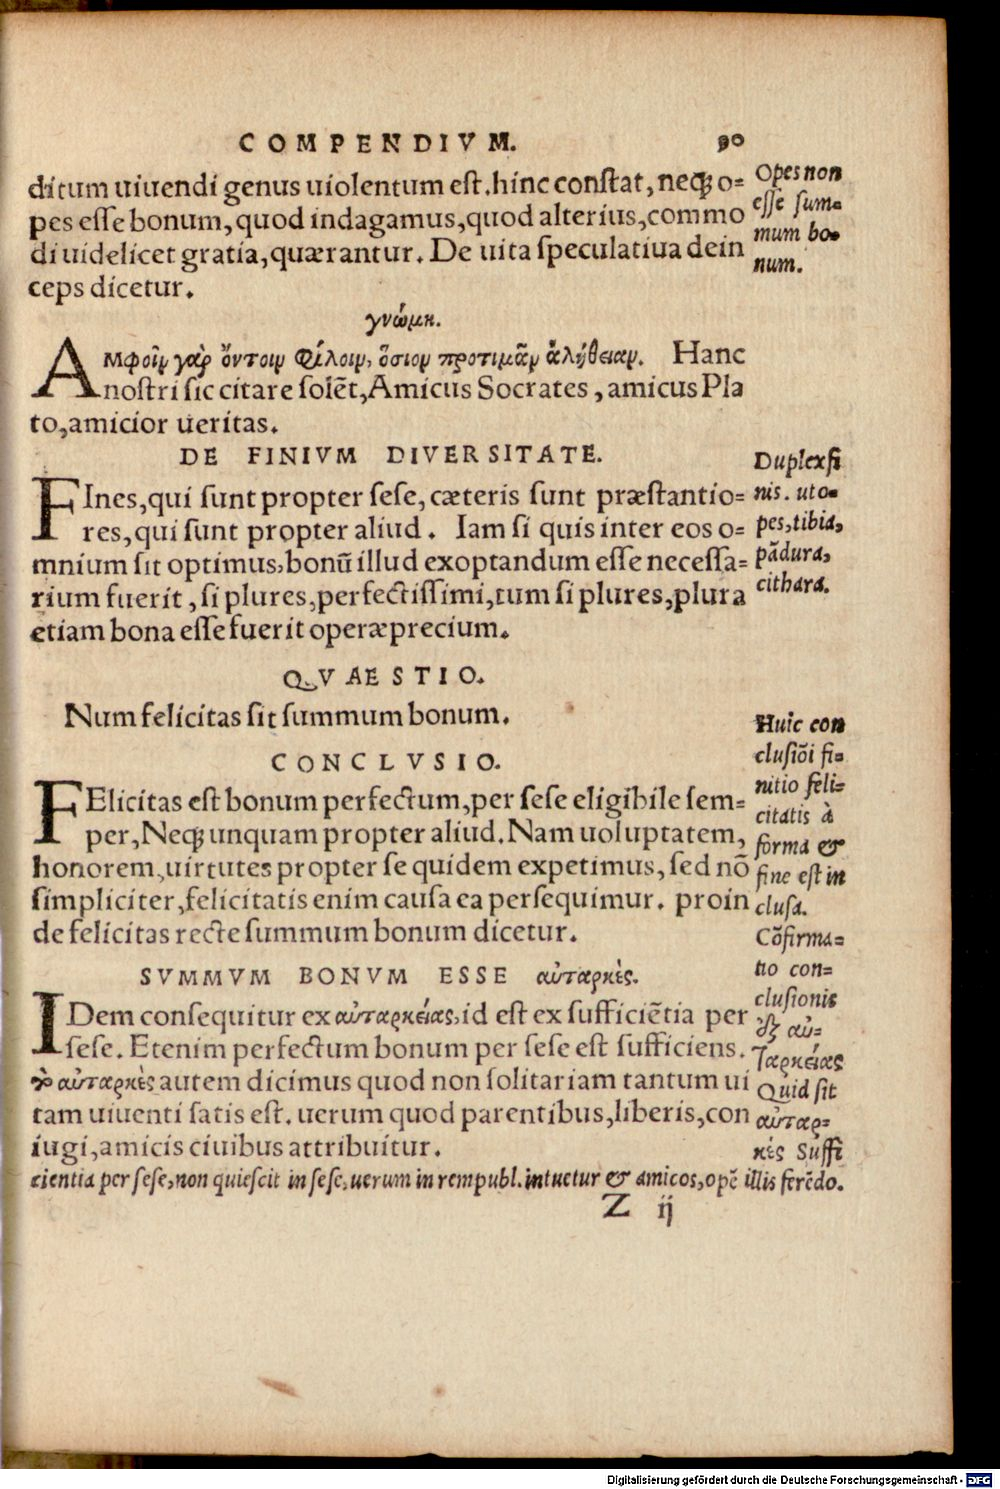 COMPENDIVM. 90
ditum uiuendi genus uiolentum est. hinc constat, neq; o-
pes esse bonum, quod indagamus, quod alterius, commo
di uidelicet gratia, quærantur. De uita speculatiua dein
ceps dicetur.
Opes non
esse sum-
mum bo-
num.
γνώμη.
Αμφοῖν γὰρ ὄντοιν φίλοιν, ὅσιον προτιμᾶν ἀλήθειαν. Hanc
nostri sic citare solẽt, Amicus Socrates, amicus Pla
to, amicior ueritas.
DE FINIVM DIVERSITATE.
FInes, qui sunt propter sese, cæteris sunt præstantio-
res, qui sunt propter aliud. Iam si quis inter eos o-
mnium sit optimus, bonũ illud exoptandum esse necessa-
rium fuerit, si plures, perfectissimi, tum si plures, plura
etiam bona esse fuerit operæprecium.
Duplex fi
nis. ut o-
pes, tibia,
pãdura,
cithara.
QVAESTIO.
Num felicitas sit summum bonum.
CONCLVSIO.
FElicitas est bonum perfectum, per sese eligibile sem-
per, Neq; unquam propter aliud. Nam uoluptatem,
honorem, uirtutes propter se quidem expetimus, sed nõ
simpliciter, felicitatis enim causa ea persequimur. proin
de felicitas recte summum bonum dicetur.
Huic con
clusiõi fi-
nitio feli-
citatis à
forma &
fine est in
clusa.
SVMMVM BONVM ESSE αὐταρκὲς.
IDem consequitur ex αὐταρκείας, id est ex sufficiẽtia per
sese. Etenim perfectum bonum per sese est sufficiens.
τὸ αὐταρκὲς autem dicimus quod non solitariam tantum ui
tam uiuenti satis est. uerum quod parentibus, liberis, con
iugi, amicis ciuibus attribuitur.
Cõfirma-
tio con-
clusionis
ἐξ αὐ-
ταρκείας
Quid sit
αὐταρ-
κές Suffi
cientia per sese, non quiescit in sese, uerum in rempubl. intuetur & amicos, opẽ illis ferẽdo.
Z ij
Digitalisierung gefördert durch die Deutsche Forschungsgemeinschaft - DFG